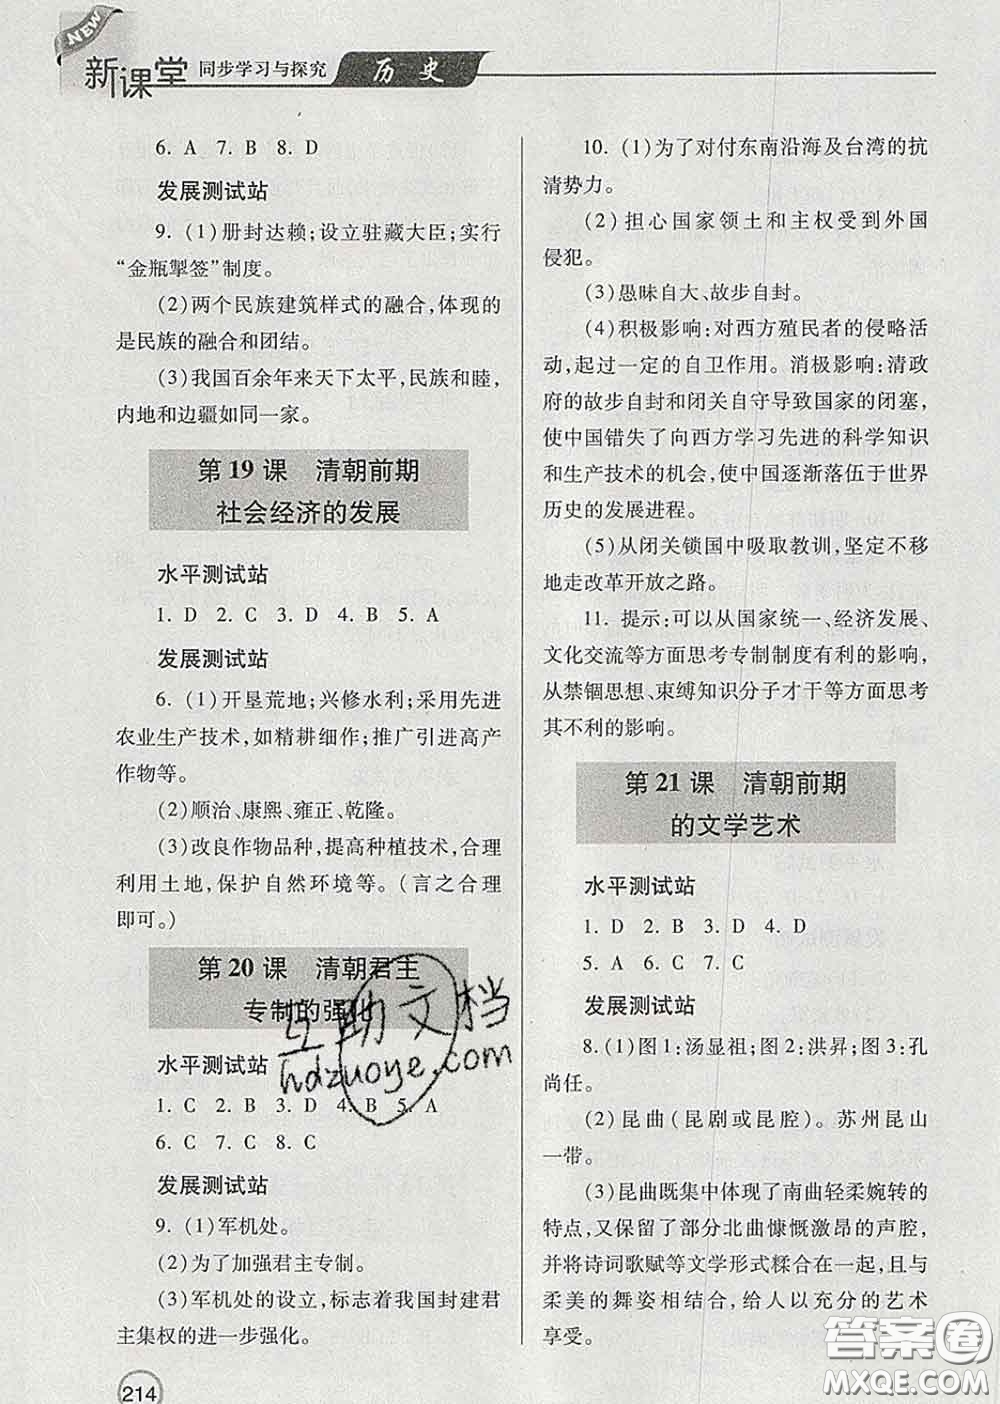 NEW
新课堂 同步学习与探究 历史
6. A 7. B 8. D
发展测试站
9. (1)册封达赖;设立驻藏大臣;实行
“金瓶掣签”制度。
(2)两个民族建筑样式的融合,体现的
是民族的融合和团结。
(3)我国百余年来天下太平,民族和睦,
内地和边疆如同一家。
第 19 课 清朝前期
社会经济的发展
水平测试站
1. D 2. C 3. D 4. B 5. A
发展测试站
6. (1)开垦荒地;兴修水利;采用先进
农业生产技术,如精耕细作;推广引进高产
作物等。
(2)顺治、康熙、雍正、乾隆。
(3)改良作物品种,提高种植技术,合理
利用土地,保护自然环境等。(言之合理
即可。)
第 20 课 清朝君主
专制的强化
水平测试站
1. C 2. B 3. D 4. B 5. A
6. C 7. C 8. C
发展测试站
9. (1)军机处。
(2)为了加强君主专制。
(3)军机处的设立,标志着我国封建君
主集权的进一步强化。
214
10. (1)为了对付东南沿海及台湾的抗
清势力。
(2)担心国家领土和主权受到外国
侵犯。
(3)愚昧自大、故步自封。
(4)积极影响:对西方殖民者的侵略活
动,起过一定的自卫作用。消极影响:清政
府的故步自封和闭关自守导致国家的闭塞,
使中国错失了向西方学习先进的科学知识
和生产技术的机会,使中国逐渐落伍于世界
历史的发展进程。
(5)从闭关锁国中吸取教训,坚定不移
地走改革开放之路。
11. 提示:可以从国家统一、经济发展、
文化交流等方面思考专制制度有利的影响,
从禁锢思想、束缚知识分子才干等方面思考
其不利的影响。
第 21 课 清朝前期
的文学艺术
水平测试站
1. D 2. B 3. D 4. D
5. A 6. C 7. D
发展测试站
8. (1)图 1:汤显祖;图 2:洪昇;图 3:孔
尚任。
(2)昆曲(昆剧或昆腔)。苏州昆山
一带。
(3)昆曲既集中体现了南曲轻柔婉转的
特点,又保留了部分北曲慷慨激昂的声腔,
并将诗词歌赋等文学形式糅合在一起,且与
柔美的舞姿相结合,给人以充分的艺术
享受。
互助文档
hdzuoye.com
答案圈
MXQE.COM